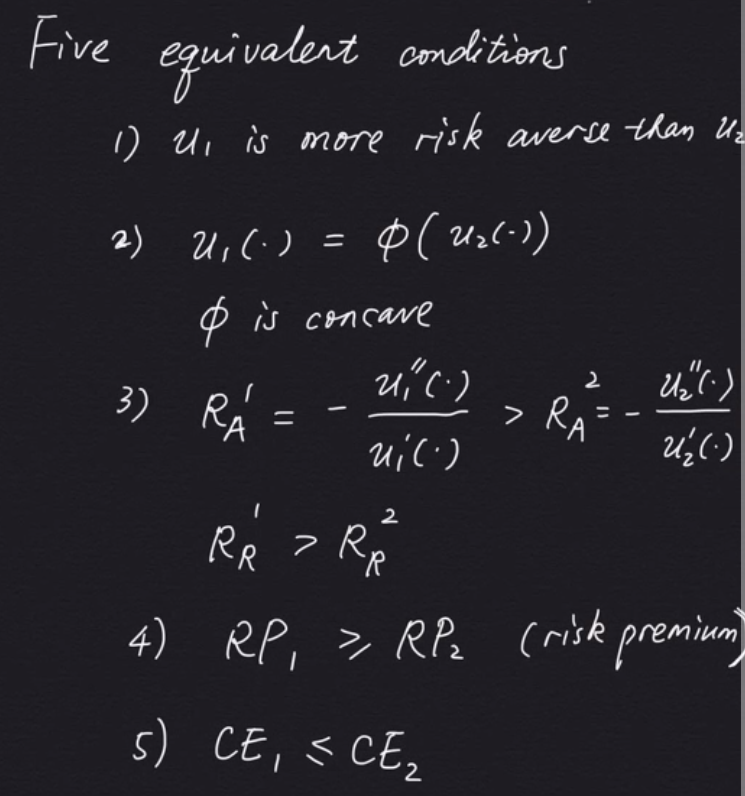 Five equivalent conditions
1) u₁ is more risk averse than u₂
2) u₁(·) = φ(u₂(·))
φ is concave
3) R_A¹ = - u₁''(·) / u₁'(·) > R_A² = - u₂''(·) / u₂'(·)
R_R¹ > R_R²
4) RP₁ ⩾ RP₂ (risk premium)
5) CE₁ ⩽ CE₂